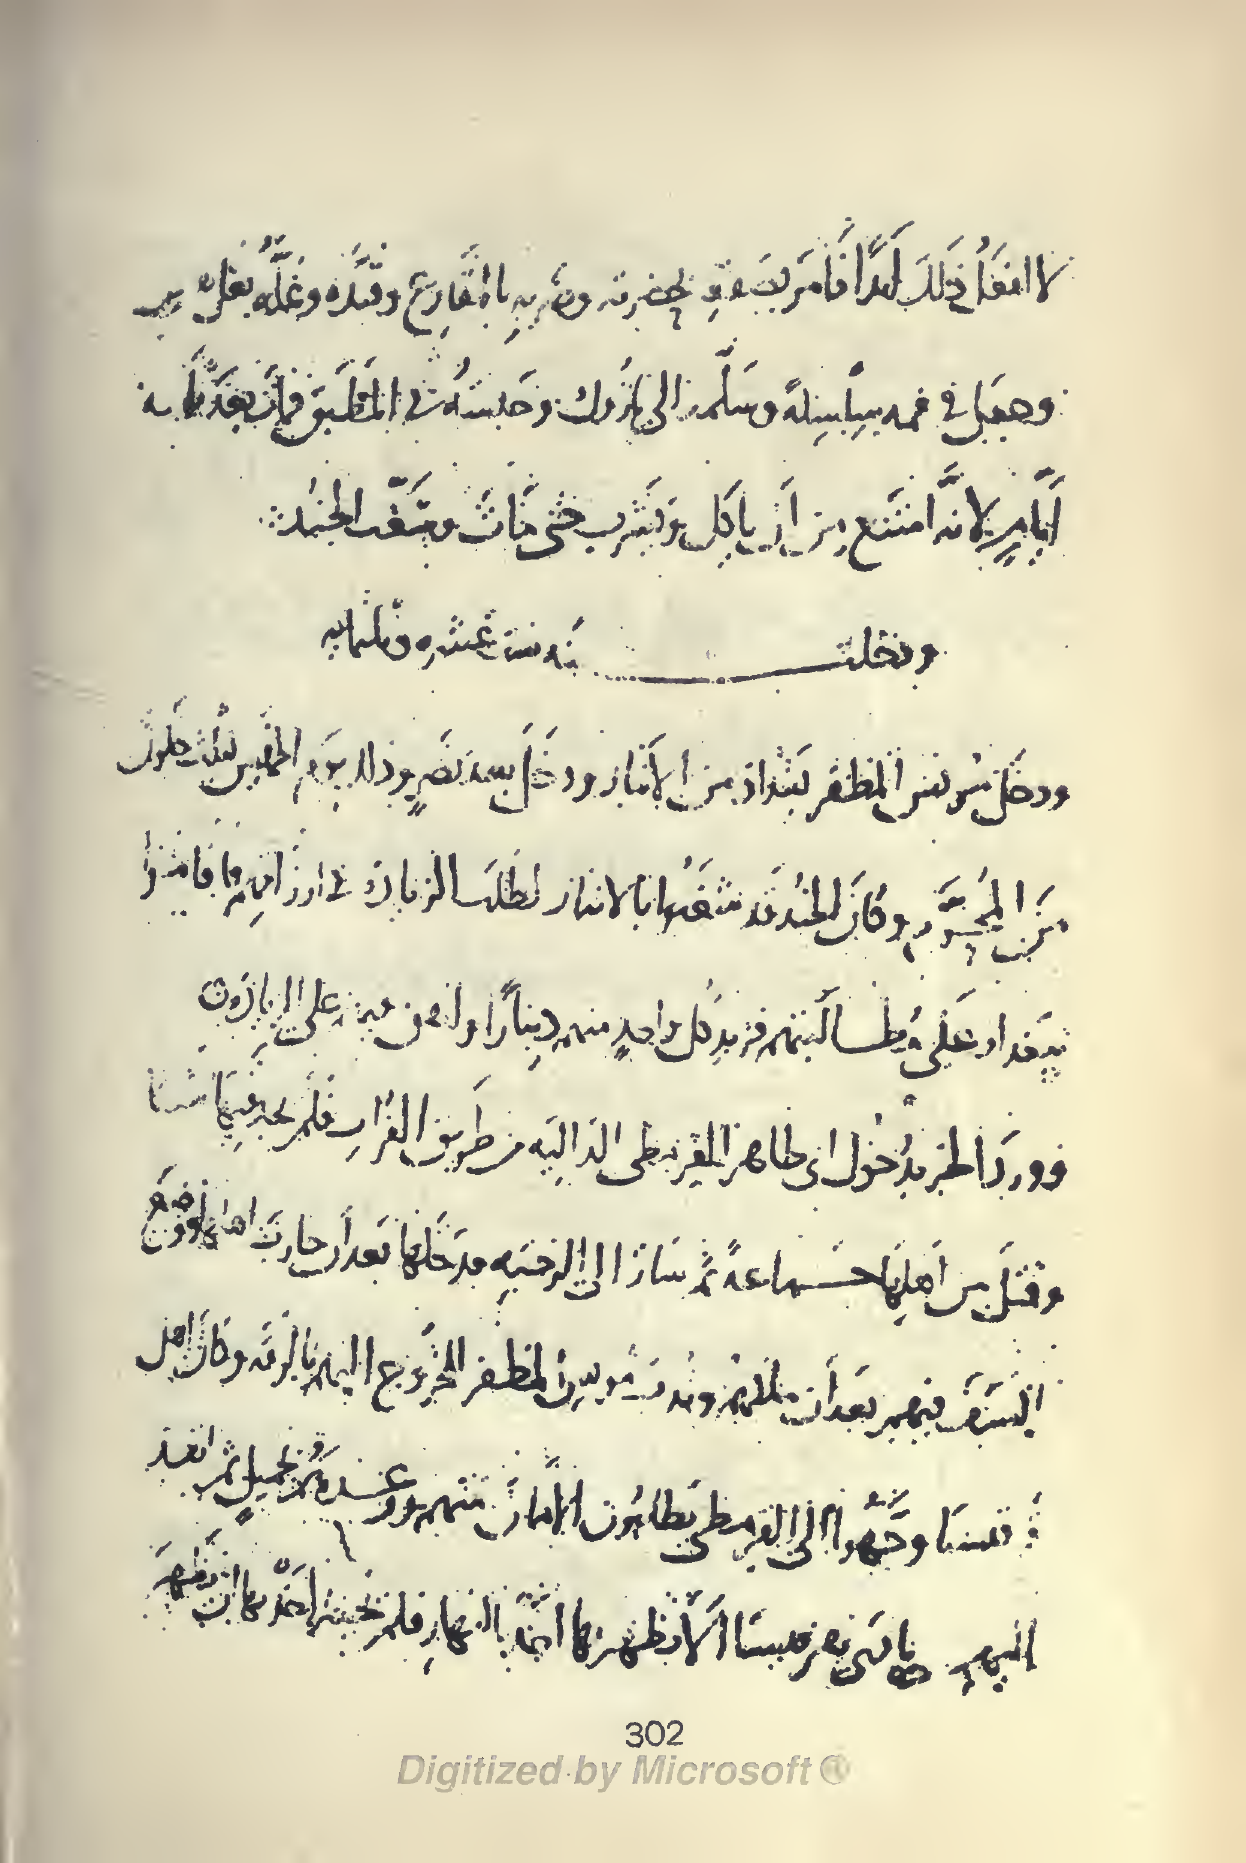 لا افعل ذلك ابدا فامر بصفعه بحضرته وضربه بالمقارع وقيده وغله بغل
وجعل في فمه سلسلة وسلمه الى نازوك وحبسه في المطبق فمات بعد ثمانية
أيام لانه امتنع من أن ياكل ويشرب حتى مات وشغب الجند
ودخلت سنه ست عشره وثلثمايه
ودخل مونس المظفر بغداد من الأنبار ودخل بعده نصر وذلك يوم الخميس لثلث خلون
من المحرم وكان الجند قد شغبوا بالانبار لطلب الزيادة في ارزاقهم فاقاموا
ببغداد على مطالبتهم فزيد كل واحد منهم دينارا على الزيادة
وورد الخبر بدخول ابي طاهر القرمطي الدالية من طريق الفرات فلم يجد فيها شيئا
وقتل من أهلها جماعة ثم سار الى الرحبه فدخلها بعد أن حارب اهلها ووضع
السيف فيهم بعد أن ملكهم وندب مونس المظفر للخروج اليهم بالرقه وكان اهل
قرقيسيا وجهوا الى القرمطي يطلبون الأمان منهم ووعدهم بجميل ثم انفذ
اليهم من نادى بقرقيسيا ألا يظهر بها أحد بالنهار فلم يجسر أحد بها ان يظهر
302
Digitized by Microsoft ®